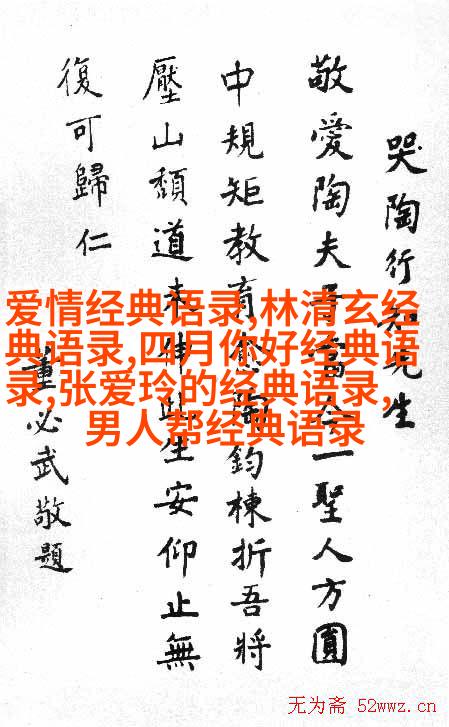 哭陶行知先生
敬愛陶夫子當今一聖人方圓
中規矩教育愈陶鈞棟折吾將
壓山頹道未伸此生安仰止無
復可歸仁
董必武敬題
爱情经典语录,林清玄经
典语录,四月你好经典语
录,张爱玲的经典语录,
男人帮经典语录
无为斋 52wwz.cn